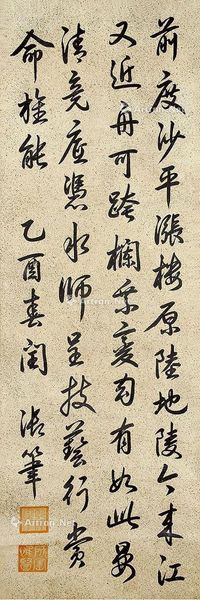 前度沙平漲樓原陸地陵今來江
又近舟可跨欄乘變有如此晏
清竟底憑水師呈技藝行賞
命旌能 乙酉春閏 御筆